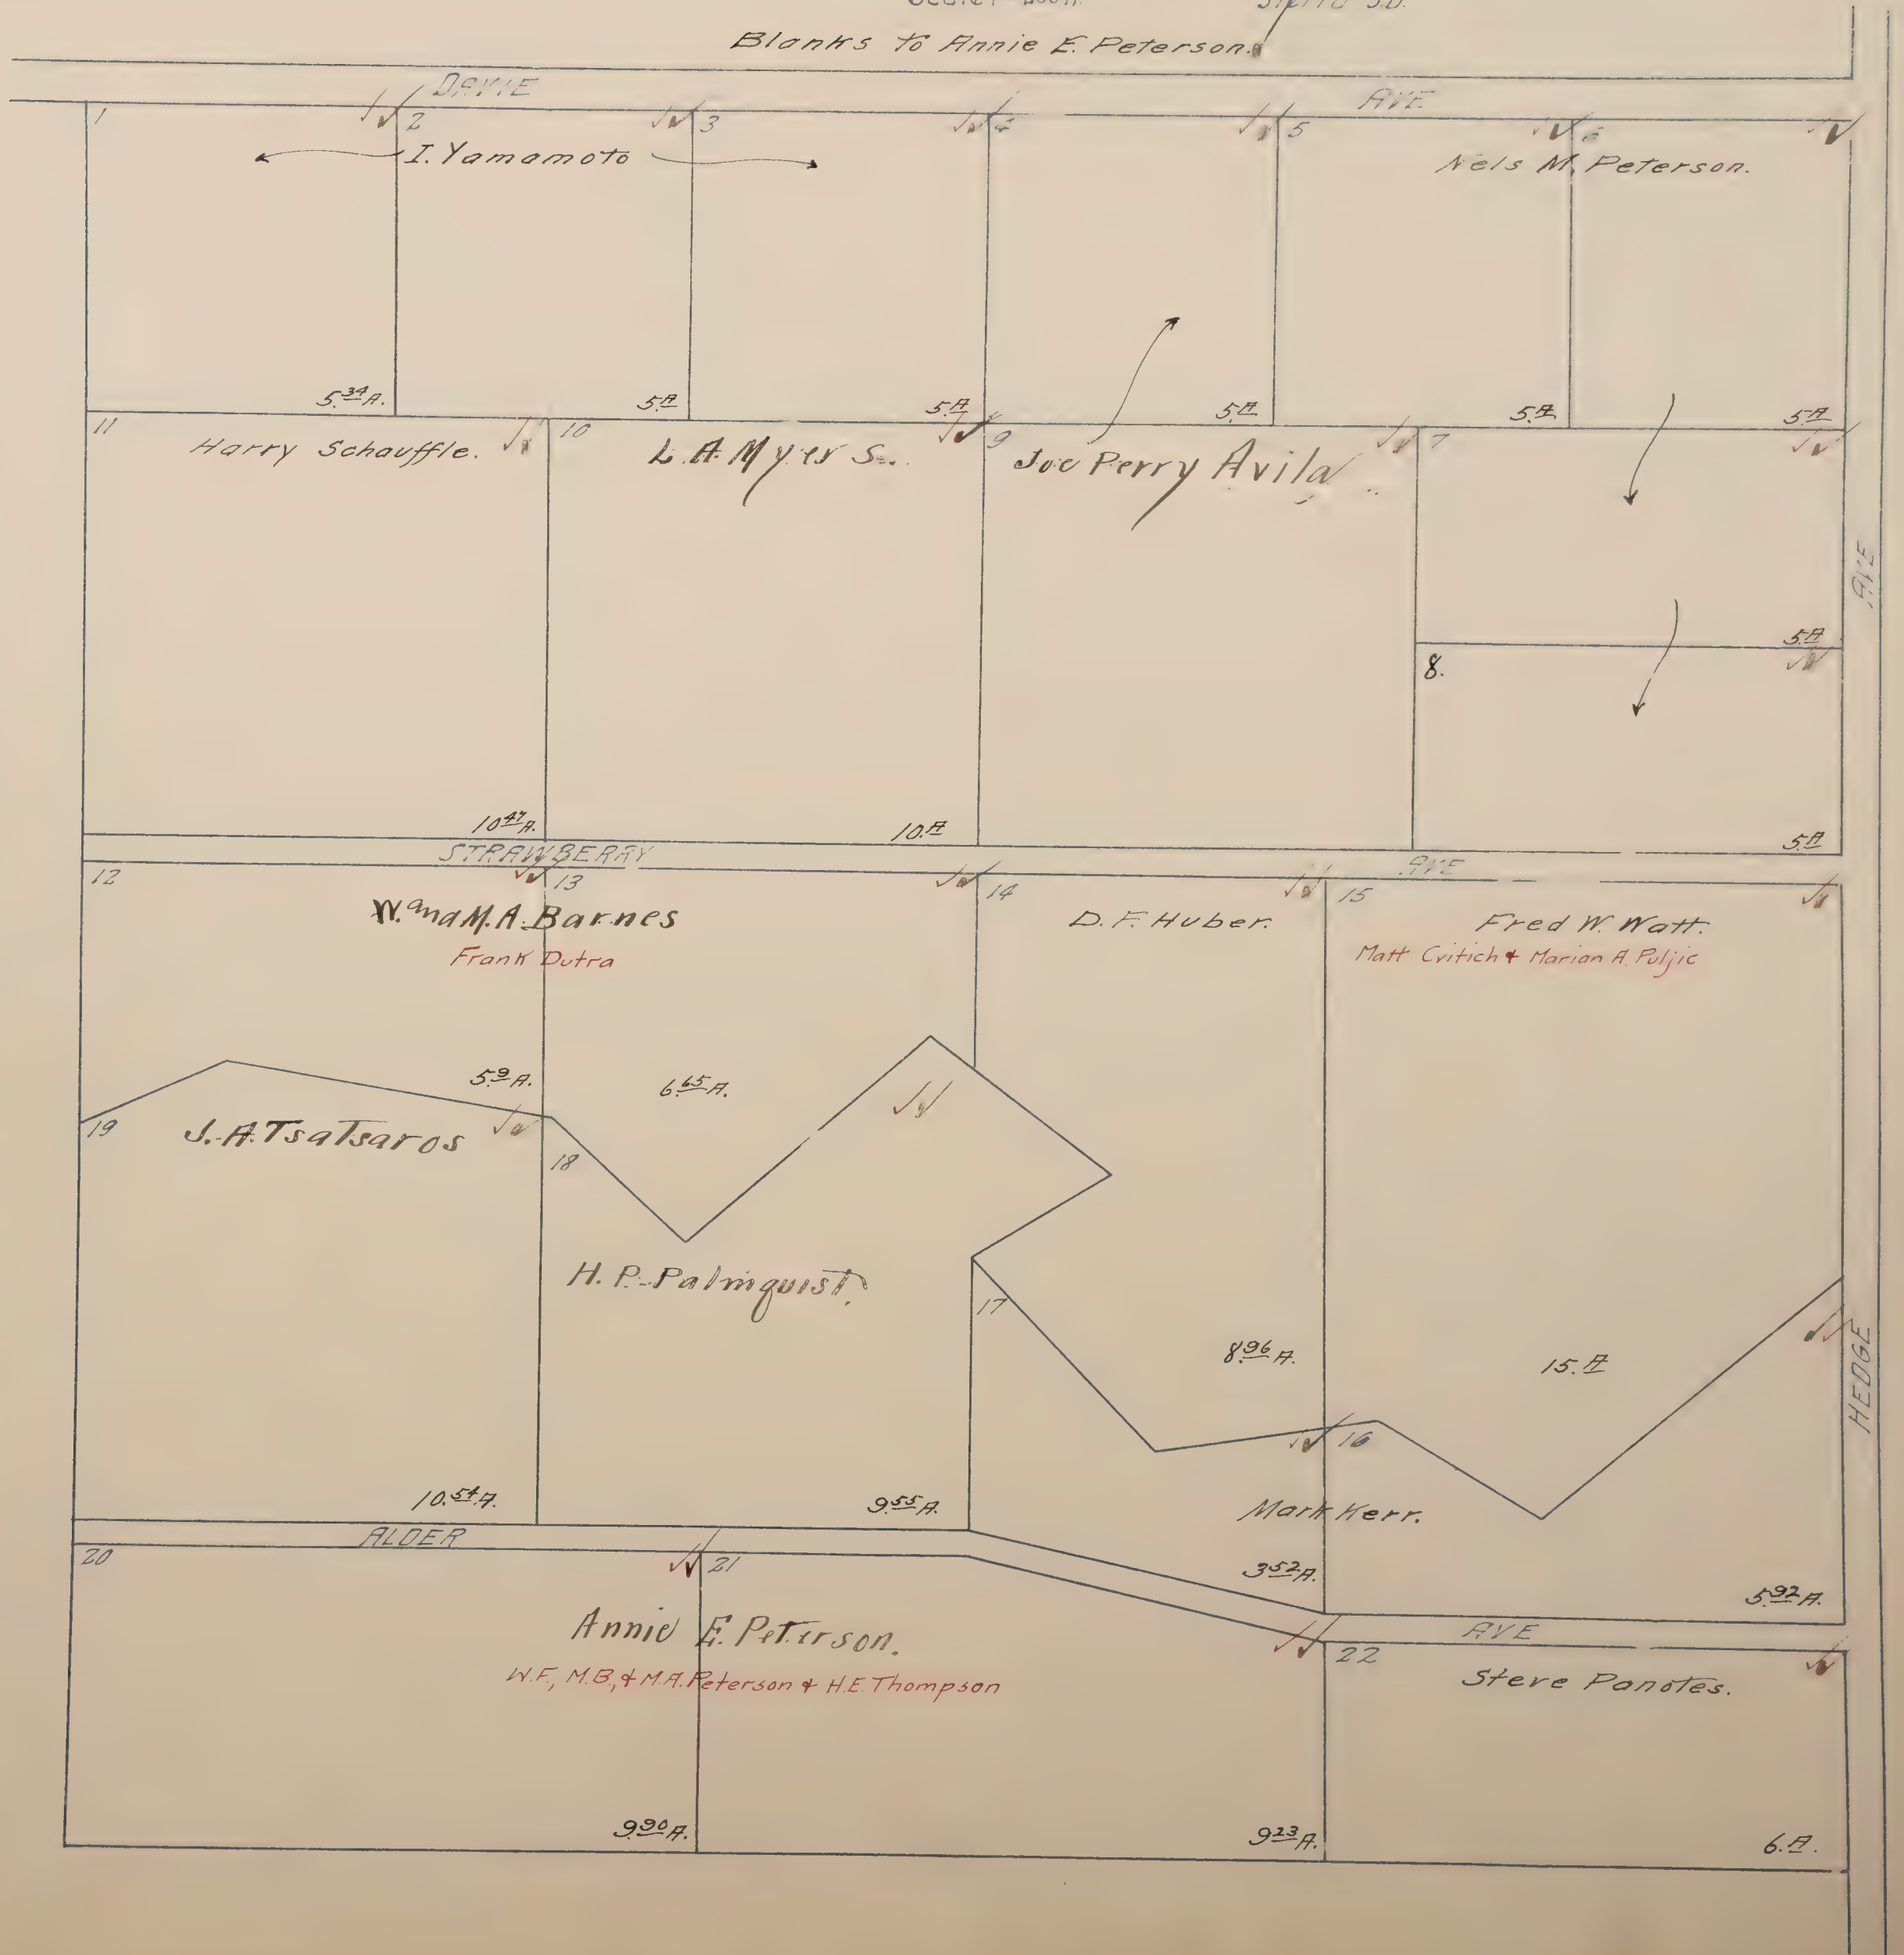 Blanks to Annie E. Peterson.
DAVIE AVE.
1 2 3 4 5 6
I. Yamamoto
Nels M. Peterson.
5.34 A. 5.A 5.A 5.A 5.A 5.A
11 10 9 7
Harry Schauffle.
L. A. Myers
Joe Perry Avila
AVE
5.A
8.
10.47 A. 10.A 5.A
STRAWBERRY AVE
12 13 14 15
W. and M. A. Barnes
Frank Dutra
D. F. Huber.
Fred W. Watt.
Matt Cvitich & Marian A. Puljic
5.9 A. 6.65 A.
19 18
J. A. Tsatsaros
H. P. Palmquist.
17
8.96 A. 15.A
HEDGE
16
10.54 A. 9.55 A.
Mark Kerr.
3.52 A. 5.92 A.
ALDER AVE
20 21 22
Annie E. Peterson.
W.F., M.B., & M.A. Peterson & H.E. Thompson
Steve Panotes.
9.90 A. 9.23 A. 6.A.